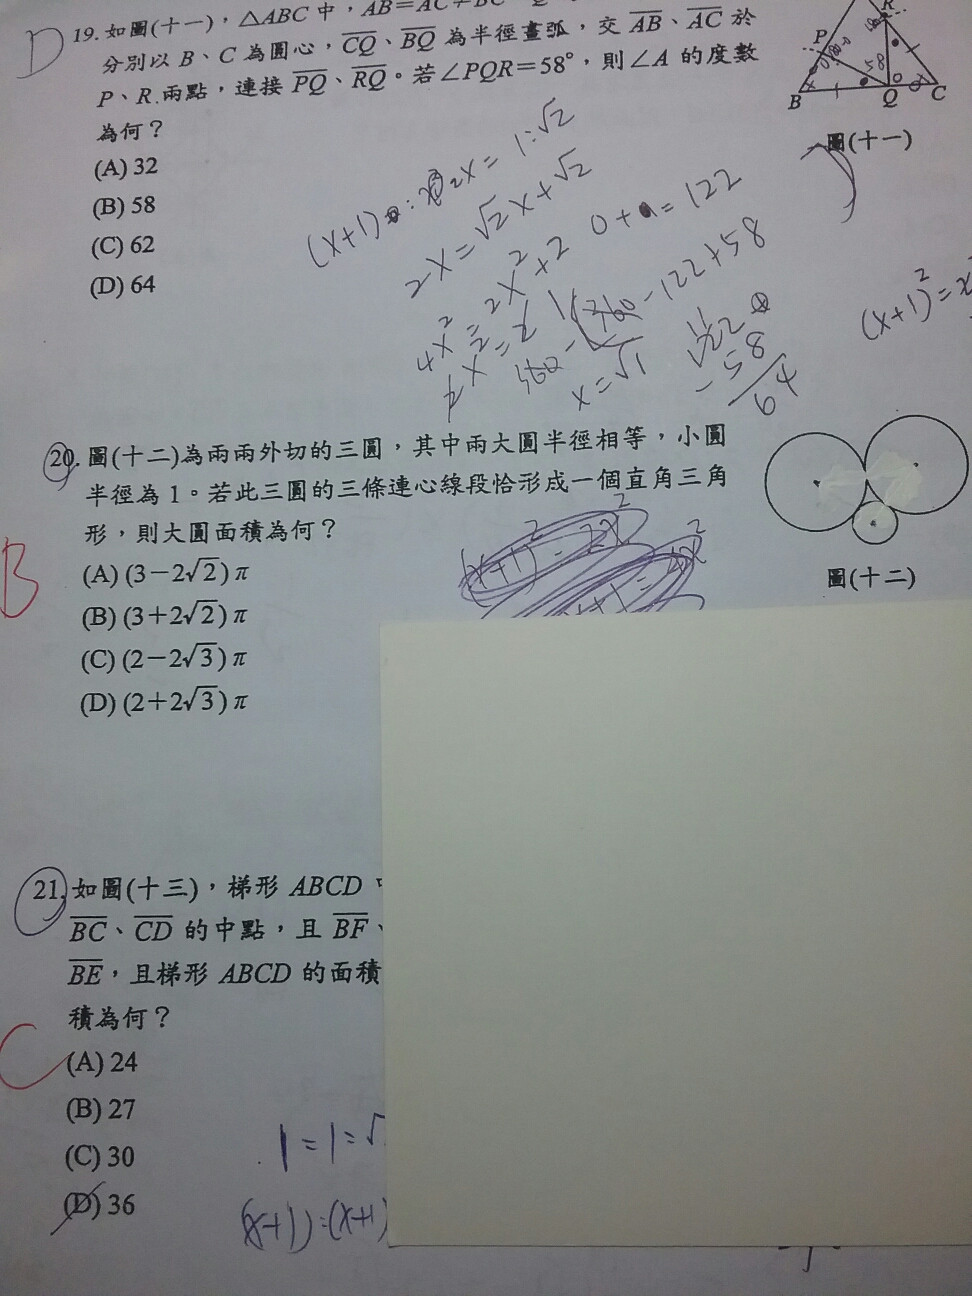 D
19. 如圖(十一)，△ABC 中，AB=AC≠BC
分別以 B、C 為圓心，CQ、BQ 為半徑畫弧，交 AB、AC 於
P、R 兩點，連接 PQ、RQ。若∠PQR=58°，則∠A 的度數
為何？
(A) 32
(B) 58
(C) 62
(D) 64
P
R
58
B
Q
C
圖(十一)
2x = √2x + √2
4x² = 2x² + 2
x = √1
122
- 58
64
20. 圖(十二)為兩兩外切的三圓，其中兩大圓半徑相等，小圓
半徑為 1。若此三圓的三條連心線段恰形成一個直角三角
形，則大圓面積為何？
B
(A) (3－2√2)π
(B) (3＋2√2)π
(C) (2－2√3)π
(D) (2＋2√3)π
圖(十二)
21. 如圖(十三)，梯形 ABCD
BC、CD 的中點，且 BF、
BE，且梯形 ABCD 的面積
積為何？
C
(A) 24
(B) 27
(C) 30
(D) 36
(x+1):(x+1)